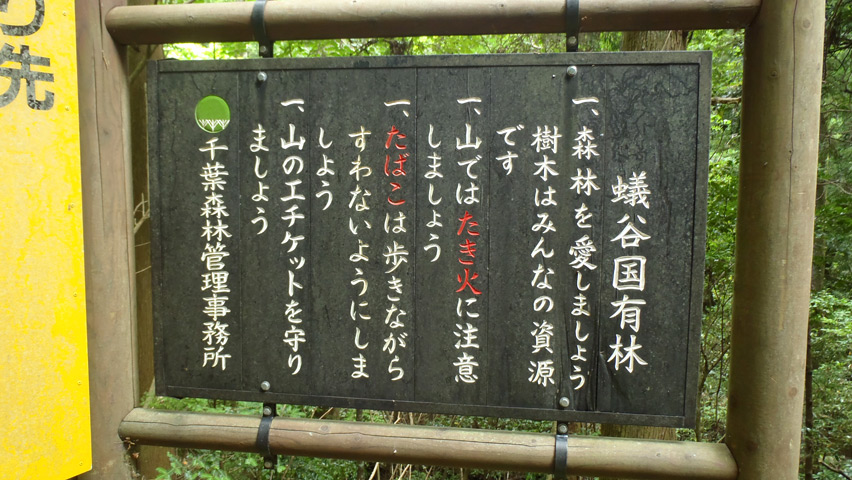 蟻谷国有林
一、森林を愛しましょう
樹木はみんなの資源
です
一、山ではたき火に注意
しましょう
一、たばこは歩きながら
すわないようにしま
しょう
一、山のエチケットを守り
ましょう
千葉森林管理事務所
り先